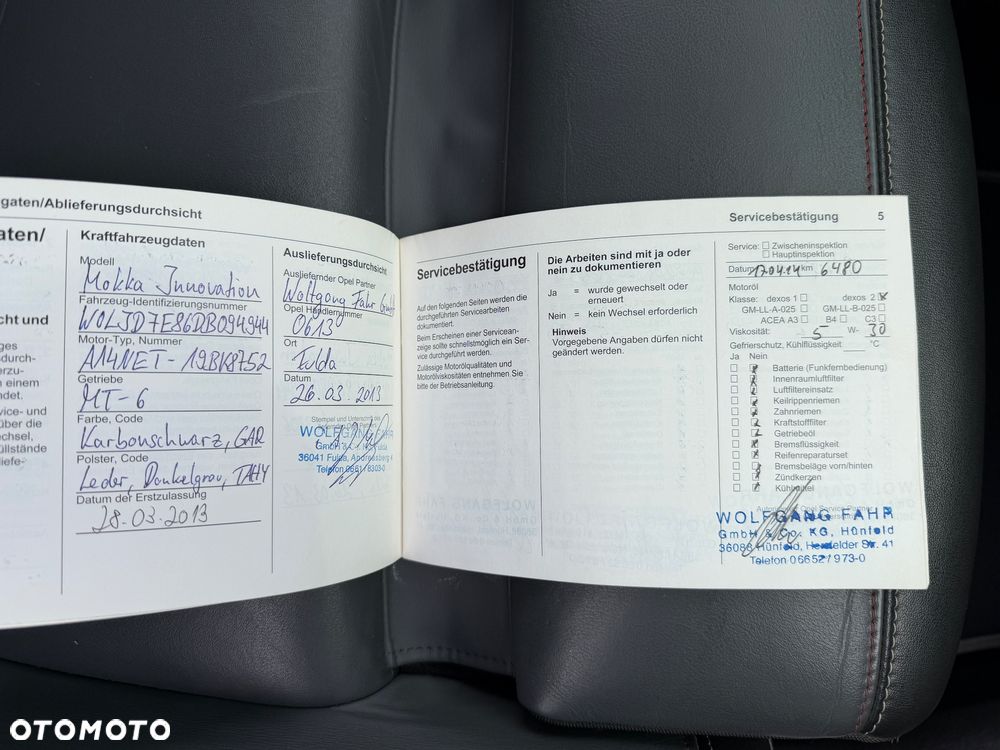 gaten/Ablieferungsdurchsicht
aten/
cht und
ges
durch-
erzu-
n einem
ndet.
vice- und
über die
echsel,
üllstände
liefe-
Kraftfahrzeugdaten
Modell
Mokka Innovation
Fahrzeug-Identifizierungsnummer
W0LJD7E86DB094944
Motor-Typ, Nummer
A14NET-19BK8752
Getriebe
MT-6
Farbe, Code
Karbonschwarz, GAR
Polster, Code
Leder, Dunkelgrau, TAHY
Datum der Erstzulassung
28.03.2013
Auslieferungsdurchsicht
Ausliefernder Opel Partner
Wolfgang Fahr GmbH
Opel Händlernummer
0613
Ort
Fulda
Datum
26.03.2013
Stempel und Unterschrift des
WOLFGANG FAHR
36041 Fulda, Andreasberg 4
Telefon 0661/8303-0
Servicebestätigung 5
Servicebestätigung
Auf den folgenden Seiten werden die
durchgeführten Servicearbeiten
dokumentiert.
Beim Erscheinen einer Servicean-
zeige sollte schnellstmöglich ein Ser-
vice durchgeführt werden.
Zulässige Motorölqualitäten und
Motorölviskositäten entnehmen Sie
bitte der Betriebsanleitung.
Die Arbeiten sind mit ja oder
nein zu dokumentieren
Ja = wurde gewechselt oder
erneuert
Nein = kein Wechsel erforderlich
Hinweis
Vorgegebene Angaben dürfen nicht
geändert werden.
Service: ☐ Zwischeninspektion
☐ Hauptinspektion
Datum 17.04.14 km 6480
Motoröl
Klasse: dexos 1 ☐ dexos 2 ☒
GM-LL-A-025 ☐ GM-LL-B-025 ☐
ACEA A3 ☐ B4 ☐ C3 ☐
Viskosität: 5 W- 30
Gefrierschutz, Kühlflüssigkeit °C
Ja Nein
Batterie (Funkfernbedienung)
Innenraumluftfilter
Luftfiltereinsatz
Keilrippenriemen
Zahnriemen
Kraftstofffilter
Getriebeöl
Bremsflüssigkeit
Reifenreparaturset
Bremsbeläge vorn/hinten
Zündkerzen
Kühlmittel
WOLFGANG FAHR
GmbH & Co. KG, Hünfeld
36088 Hünfeld, Hersfelder Str. 41
Telefon 06652/973-0
OTOMOTO